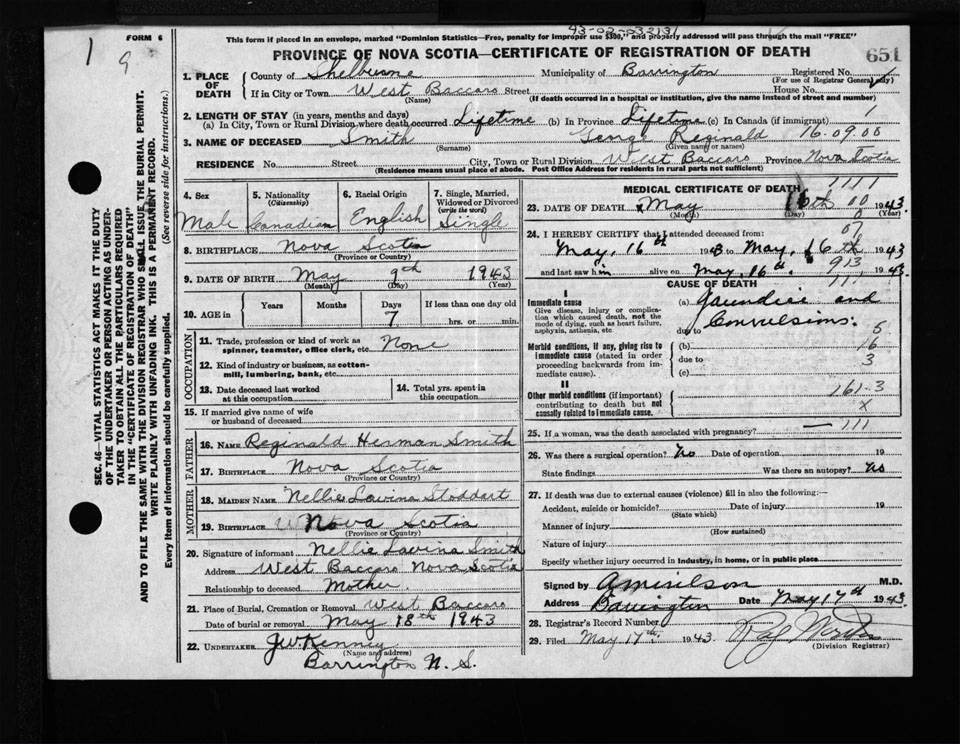 FORM 6
1
9
This form if placed in an envelope, marked "Dominion Statistics—Free, penalty for improper use $300," and properly addressed will pass through the mail "FREE"
PROVINCE OF NOVA SCOTIA—CERTIFICATE OF REGISTRATION OF DEATH
651
SEC. 46—VITAL STATISTICS ACT MAKES IT THE DUTY
OF THE UNDERTAKER OR PERSON ACTING AS UNDER-
TAKER TO OBTAIN ALL THE PARTICULARS REQUIRED
IN THE "CERTIFICATE OF REGISTRATION OF DEATH"
AND TO FILE THE SAME WITH THE DIVISION REGISTRAR WHO SHALL ISSUE THE BURIAL PERMIT.
WRITE PLAINLY WITH UNFADING INK. THIS IS A PERMANENT RECORD.
Every item of information should be carefully supplied. (See reverse side for instructions.)
1. PLACE OF DEATH County of Shelburne Municipality of Barrington Registered No.
(For use of Registrar General only)
If in City or Town West Baccaro Street House No.
(Name) (If death occurred in a hospital or institution, give the name instead of street and number)
2. LENGTH OF STAY (in years, months and days)
(a) In City, Town or Rural Division where death occurred Lifetime (b) In Province Lifetime (c) In Canada (if immigrant) 1
3. NAME OF DECEASED Smith George Reginald 16-09-00
(Surname) (Given name or names)
RESIDENCE No. Street City, Town or Rural Division West Baccaro Province Nova Scotia
(Residence means usual place of abode. Post Office Address for residents in rural parts not sufficient)
4. Sex Male
5. Nationality (Citizenship) Canadian
6. Racial Origin English
7. Single, Married, Widowed or Divorced (write the word) Single
8. BIRTHPLACE Nova Scotia
(Province or Country)
9. DATE OF BIRTH May 9th 1943
(Month) (Day) (Year)
10. AGE in Years Months Days 7 If less than one day old hrs. or min.
OCCUPATION
11. Trade, profession or kind of work as
spinner, teamster, office clerk, etc. None
12. Kind of industry or business, as cotton-
mill, lumbering, bank, etc.
13. Date deceased last worked
at this occupation
14. Total yrs. spent in
this occupation
15. If married give name of wife
or husband of deceased
FATHER
16. NAME Reginald Herman Smith
17. BIRTHPLACE Nova Scotia
(Province or Country)
MOTHER
18. MAIDEN NAME Nellie Lavina Stoddart
19. BIRTHPLACE Nova Scotia
(Province or Country)
20. Signature of informant Nellie Lavina Smith
Address West Baccaro Nova Scotia
Relationship to deceased Mother
21. Place of Burial, Cremation or Removal West Baccaro
Date of burial or removal May 18th 1943
22. UNDERTAKER J W Kenney
(Name and address)
Barrington N. S.
MEDICAL CERTIFICATE OF DEATH
1111
23. DATE OF DEATH May 16th 00 1943.
(Month) (Day) (Year)
0
24. I HEREBY CERTIFY that I attended deceased from: 07
May, 16th 1943 to May, 16th 1943
and last saw him alive on May, 16th. 913, 1943.
CAUSE OF DEATH 111
I
Immediate cause
Give disease, injury or complica-
tion which caused death, not the
mode of dying, such as heart failure,
asphyxia, asthenia, etc.
(a) Jaundice and
Convulsions.
due to 5
Morbid conditions, if any, giving rise to
immediate cause (stated in order
proceeding backwards from im-
mediate cause).
(b) 16
due to 3
(c)
II
Other morbid conditions (if important)
contributing to death but not
causally related to immediate cause.
161-3
x
25. If a woman, was the death associated with pregnancy? — 111
26. Was there a surgical operation? No Date of operation 19
State findings Was there an autopsy? No
27. If death was due to external causes (violence) fill in also the following:—
Accident, suicide or homicide? Date of injury 19
(State which)
Manner of injury
(How sustained)
Nature of injury
Specify whether injury occurred in industry, in home, or in public place
Signed by M.D.
Address Barrington Date May 17th 1943.
28. Registrar's Record Number
29. Filed May 17th. 1943.
(Division Registrar)